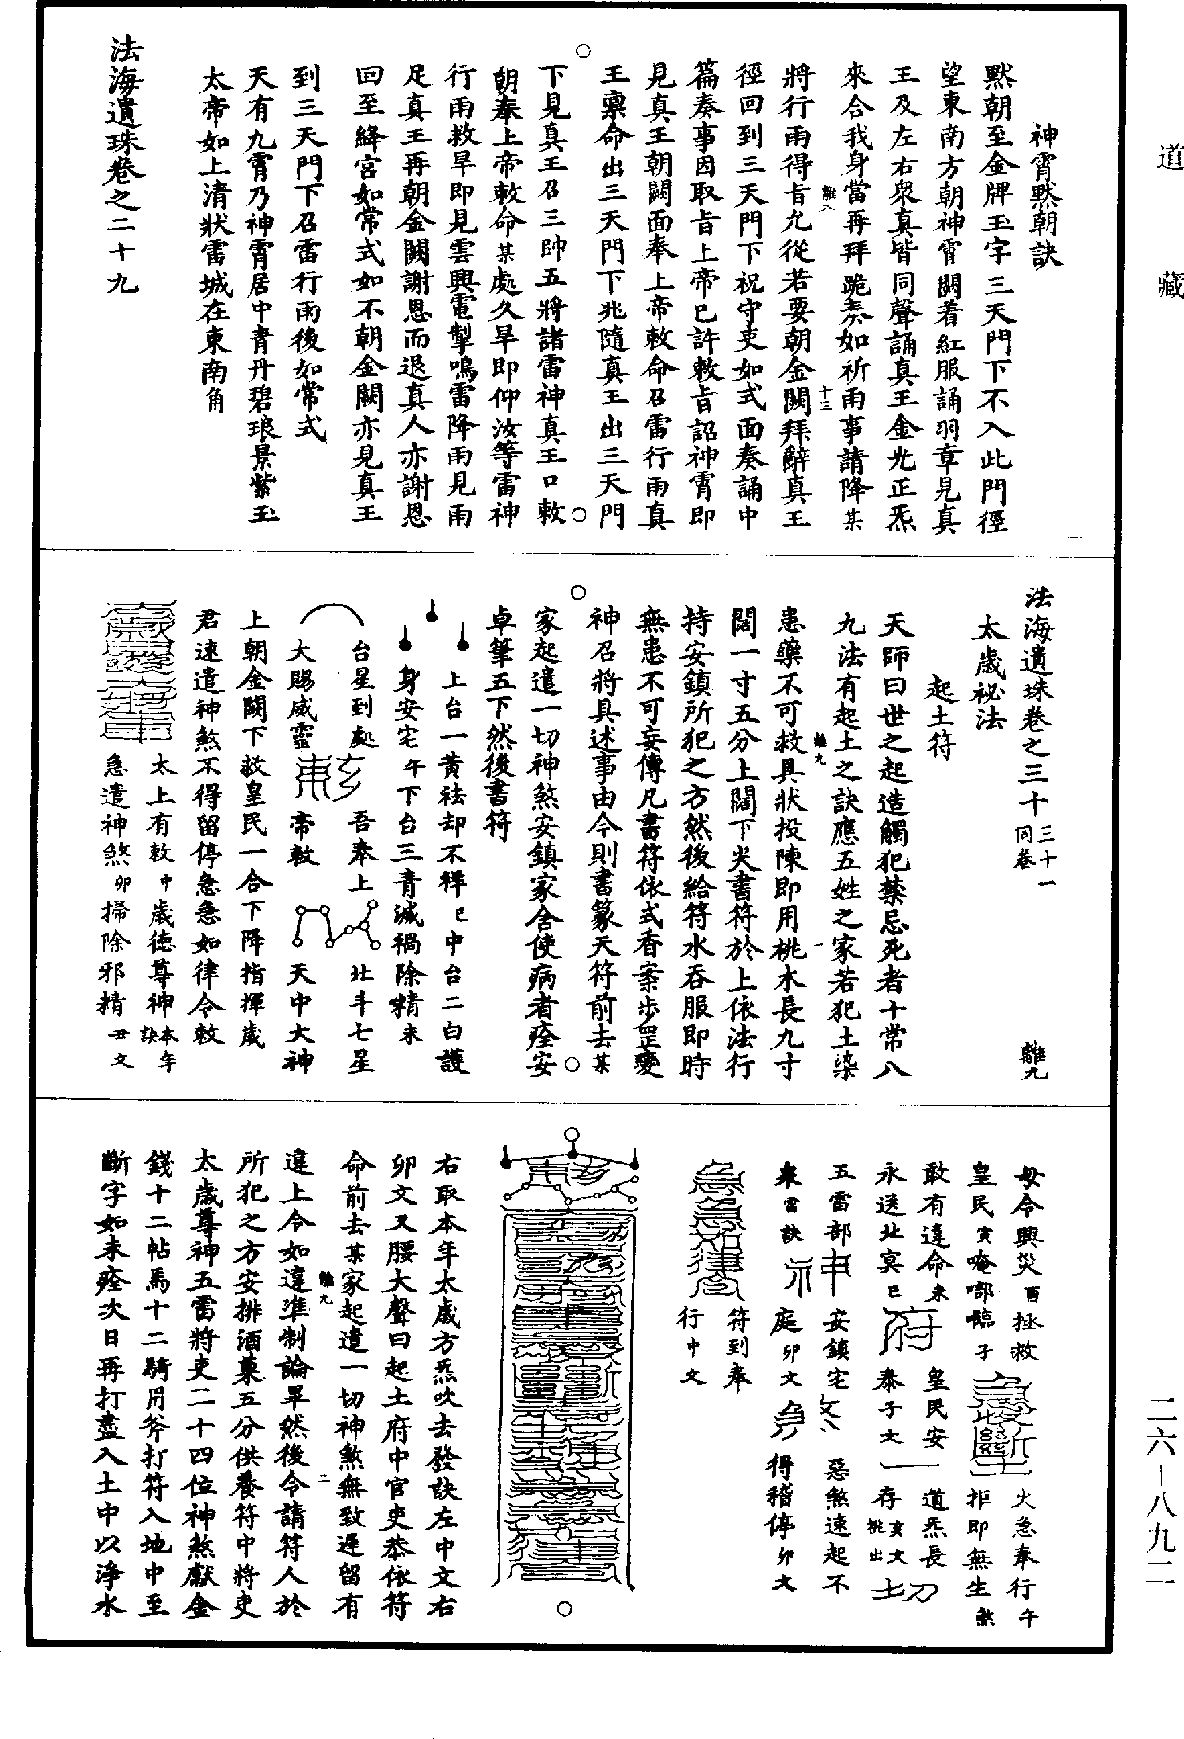 道藏
神霄默朝訣
默朝至金牌玉字三天門下不入此門徑
望東南方朝神霄闕着紅服誦羽章見真
王及左右眾真皆同聲誦真王金光正炁
來合我身當再拜跪奏如祈雨事請降某
離八
十三
將行雨得旨允從若要朝金闕拜辭真王
徑回到三天門下祝守吏如式面奏誦中
篇奏事因取旨上帝已許敕旨詔神霄即
見真王朝闕面奉上帝敕命召雷行雨真
王稟命出三天門下兆隨真王出三天門
下見真王召三帥五將諸雷神真王口敕
朝奉上帝敕命某處久旱即仰汝等雷神
行雨救旱即見雲興電掣鳴雷降雨見雨
足真王再朝金闕謝恩而退真人亦謝恩
回至絳宮如常式如不朝金闕亦見真王
到三天門下召雷行雨後如常式
天有九霄乃神霄居中青丹碧琅景紫玉
太帝如上清狀雷城在東南角
法海遺珠卷之二十九
法海遺珠卷之三十 三十一同卷 離九
太歲祕法
起土符
天師曰世之起造觸犯禁忌死者十常八
九法有起土之訣應五姓之家若犯土染
離九
一
患藥不可救具狀投陳即用桃木長九寸
闊一寸五分上闊下尖書符於上依法行
持安鎮所犯之方然後給符水吞服即時
無患不可妄傳凡書符依式香案步罡變
神召將具述事由今則書篆天符前去某
家起遣一切神煞安鎮家舍使病者痊安
卓筆五下然後書符
上台一黃祛却不祥巳中台二白護
身安宅午下台三青滅禍除精未
台星到處 吾奉上 北斗七星
大賜威靈 帝敕 天中大神
上朝金闕下救皇民一合下降指揮歲
君速遣神煞不得留停急急如律令敕
太上有敕中歲德尊神本年訣
急遣神煞卯掃除邪精丑文
毋令興災酉拯救 火急奉行午
皇民寅唵啷𪡏子 拒即無生煞
敢有違命未 皇民安 道炁長
永送北冥巳 泰子文 存亥文桃出
五雷部 安鎮宅 惡煞速起不
來雷訣 庭卯文 得稽停卯文
符到奉
行中文
右取本年太歲方炁吹去發訣左中文右
卯文叉腰大聲曰起土府中官吏恭依符
命前去某家起遣一切神煞無致遲留有
離九
二
違上令如違準制論畢然後令請符人於
所犯之方安排酒菓五分供養符中將吏
太歲尊神五雷將吏二十四位神煞獻金
錢十二帖馬十二騎用斧打符入地中至
斷字如未痊次日再打盡入土中以淨水
二六—八九二